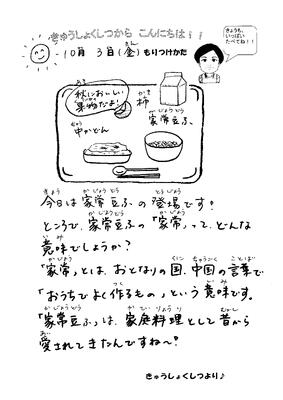 きゅうしょくしつから こんにちは!!
10月 3日(金) もりつけかた
きょうも、
いっぱい
たべてね!!
秋においしい
果物だよ!
柿
家常豆ふ
中かどん
今日は家常豆ふの登場です!
ところで、家常豆ふの「家常」って、どんな
意味でしょうか?
「家常」とは、おとなりの国、中国の言葉で
「おうちでよく作るもの」という意味です。
「家常豆ふ」は、家庭料理として昔から
愛されてきたんですね〜!
きゅうしょくしつより♪